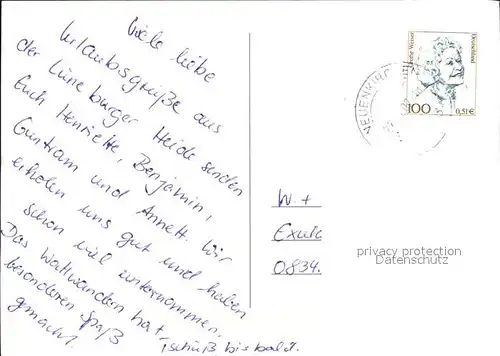 Viele liebe
Urlaubsgrüße aus
der Lüneburger Heide senden
Euch Henriette, Benjamin,
Guntram und Annett. Wir
erholen uns gut und haben
schon viel unternommen.
Das Wattwandern hat
besonderen Spaß
gemacht.
Tschüß bis bald.
Deutschland
100
0,51€
NEUENKIR
W. +
0834.
privacy protection
Datenschutz